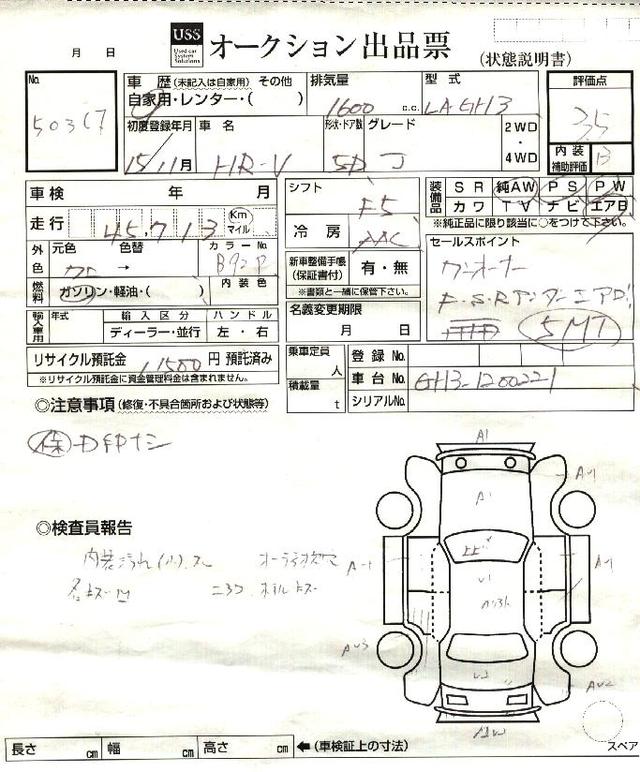 月 日
USS Used car System Solutions
オークション出品票 (状態説明書)
No. 50367
車歴 (未記入は自家用) その他
自家用・レンター・( )
排気量 1600 c.c.
型式 LA GH3
評価点 3.5
初度登録年月 15/11月
車名 HR-V
形状・ドア数 5D
グレード J
2WD・4WD
内装補助評価 B
車検 年 月
走行 45,713 Km マイル
シフト F5
冷房 AAC
装備品 SR 純AW PS PW
カワ TV ナビ エアB
※純正品に限り該当に○をつけて下さい。
外色 元色 クロ 色替 → カラーNo. B92P
燃料 ガソリン・軽油・( ) 内装色
新車整備手帳(保証書付) 有・無
※書類と一緒に保管下さい。
セールスポイント
ワンオーナー
F.S.Rアンダーエアロ
5MT
輸入車用 年式 輸入区分 ディーラー・並行 ハンドル 左・右
名義変更期限 月 日
リサイクル預託金 11500 円 預託済み
※リサイクル預託金に資金管理料金は含まれません。
乗車定員 人
積載量 t
登録No.
車台No. GH3-1200221
シリアルNo.
◎注意事項 (修復・不具合箇所および状態等)
◎検査員報告
内装汚れ(小).スレ
A1
AU1
A1
A-1
V1
A-1
AU3
AU2
スペア
長さ cm 幅 cm 高さ cm ←(車検証上の寸法)